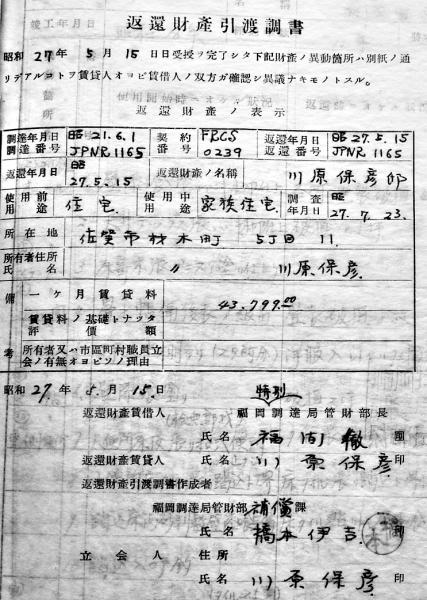 返還財産引渡調書
昭和 27年 5月 15日日受授ヲ完了シタ下記財産ノ異動箇所ハ別紙ノ通
リデアルコトヲ賃貸人オヨビ賃借人ノ双方ガ確認シ異議ナキモノトスル。
返還財産ノ表示
調達年月日 昭21.6.1 契約 FRCS 返還年月日 昭27.5.15
調達番号 JPNR1165 番号 0239 返還番号 JPNR1165
返還年月日 昭27.5.15 返還財産ノ名称 川原保彦邸
使用前用途 住宅. 使用中用途 家族住宅. 調査年月日 昭27.7.23.
所在地 佐賀市材木町 5丁目 11.
所有者住所 〃
氏名 川原保彦.
備考
一ケ月賃貸料 43,799.00
賃貸料ノ基礎トナッタ評価額
所有者又ハ市区町村職員立
会ノ有無オヨビソノ理由
昭和 27年 5月 15日. 特別
返還財産賃借人 福岡調達局管財部長
氏名 徹 印
返還財産賃貸人 氏名 川原保彦 印
返還財産引渡調書作成者
福岡調達局管財部 補償課
氏名 橋本伊吉 印
立会人 住所
氏名 川原保彦 印